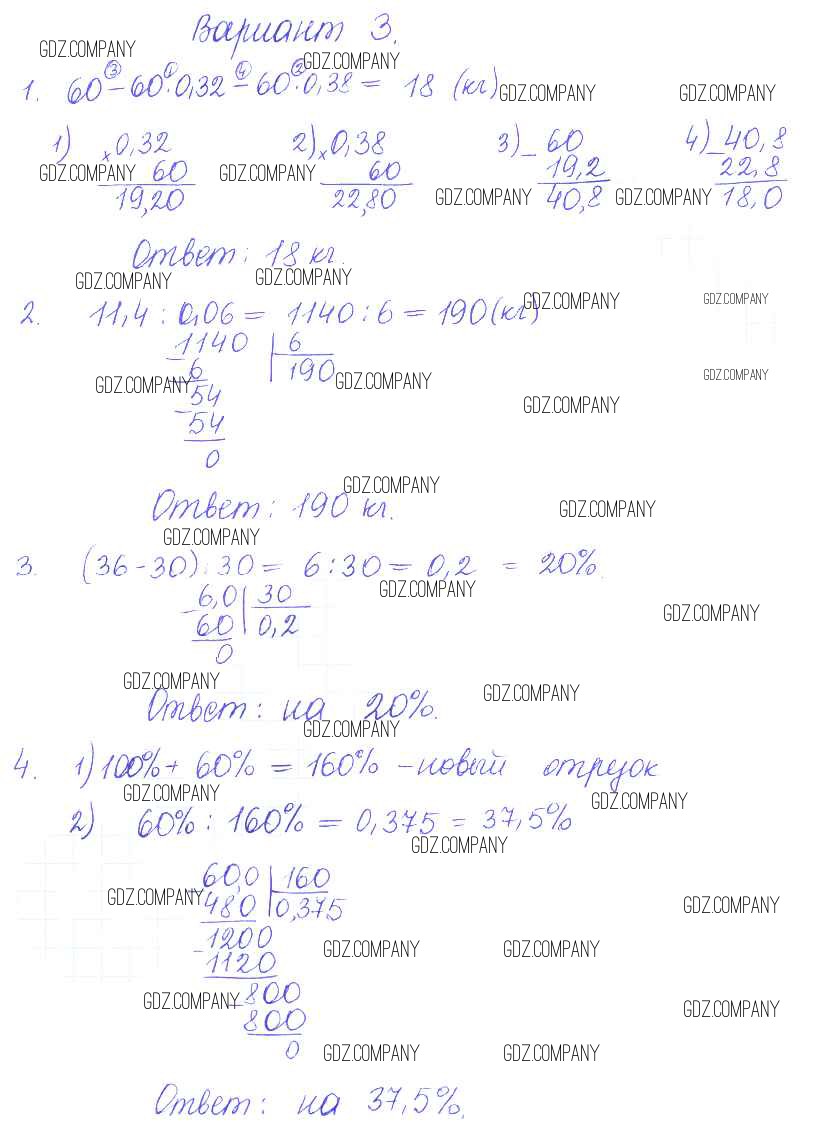 Вариант 3.
GDZ.COMPANY GDZ.COMPANY
1. 60 ③ − 60 ① · 0,32 ④ − 60 ② · 0,38 = 18 (кг) GDZ.COMPANY GDZ.COMPANY
1) × 0,32 2) × 0,38 3) − 60 4) − 40,8
GDZ.COMPANY 60 GDZ.COMPANY 60 19,2 22,8
19,20 22,80 GDZ.COMPANY 40,8 GDZ.COMPANY 18,0
Ответ: 18 кг.
GDZ.COMPANY GDZ.COMPANY
2. 11,4 : 0,06 = 1140 : 6 = 190 (кг) GDZ.COMPANY GDZ.COMPANY
− 1140 6
6 190
GDZ.COMPANY GDZ.COMPANY GDZ.COMPANY
− 54 GDZ.COMPANY
54
0
GDZ.COMPANY
Ответ: 190 кг. GDZ.COMPANY
GDZ.COMPANY
3. (36 - 30) : 30 = 6 : 30 = 0,2 = 20%.
− 6,0 30 GDZ.COMPANY
60 0,2 GDZ.COMPANY
0
GDZ.COMPANY GDZ.COMPANY
Ответ: на 20%.
GDZ.COMPANY
4. 1) 100% + 60% = 160% - новый отрезок
GDZ.COMPANY GDZ.COMPANY
2) 60% : 160% = 0,375 = 37,5%
GDZ.COMPANY
− 60,0 160
GDZ.COMPANY 480 0,375 GDZ.COMPANY
− 1200
1120 GDZ.COMPANY GDZ.COMPANY
GDZ.COMPANY − 800 GDZ.COMPANY
800
0 GDZ.COMPANY GDZ.COMPANY
Ответ: на 37,5%.